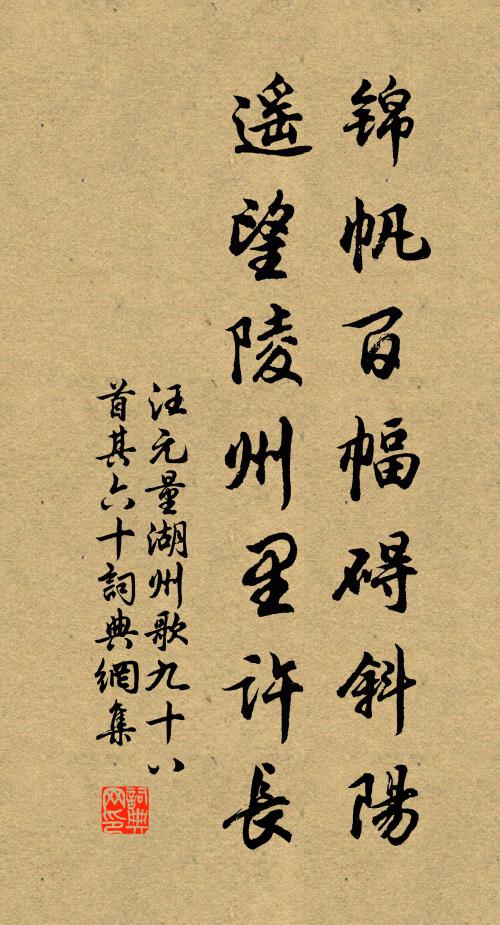 锦帆百幅碍斜陽
遥望陵州里许長
汪元量湖州歌九十八
首其六十詞典網集
詞典
网印